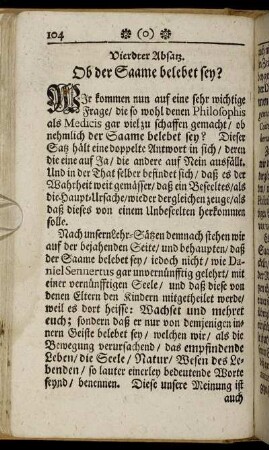 104 ❁ (0) ❁
Vierdter Absatz.
Ob der Saame belebet sey?
WIr kommen nun auf eine sehr wichtige
Frage/ die so wohl denen Philosophis
als Medicis gar viel zu schaffen gemacht/ ob
nehmlich der Saame belebet sey? Dieser
Satz hält eine doppelte Antwort in sich/ deren
die eine auf Ja/ die andere auf Nein ausfällt.
Und in der That selber befindet sich/ daß es der
Wahrheit weit gemässer/ daß ein Beseeltes/als
die Haupt-Ursache/wieder dergleichen zeuge/als
daß dieses von einem Unbeseelten herkommen
solle.
Nach unsern Lehr-Sätzen demnach stehen wir
auf der bejahenden Seite/ und behaupten/ daß
der Saame belebet sey/ jedoch nicht/ wie Da-
niel Sennertus gar unvernünfftig gelehrt/ mit
einer vernünfftigen Seele/ und daß diese von
denen Eltern den Kindern mitgetheilet werde/
weil es dort heisse: Wachset und mehret
euch; sondern daß er nur von demjenigen in-
nern Geiste belebet sey/ welchen wir/ als die
Bewegung verursachend/ das empfindende
Leben/ die Seele/ Natur/ Wesen des Le-
benden/ so lauter einerley bedeutende Worte
seynd/ benennen. Diese unsere Meinung ist
auch